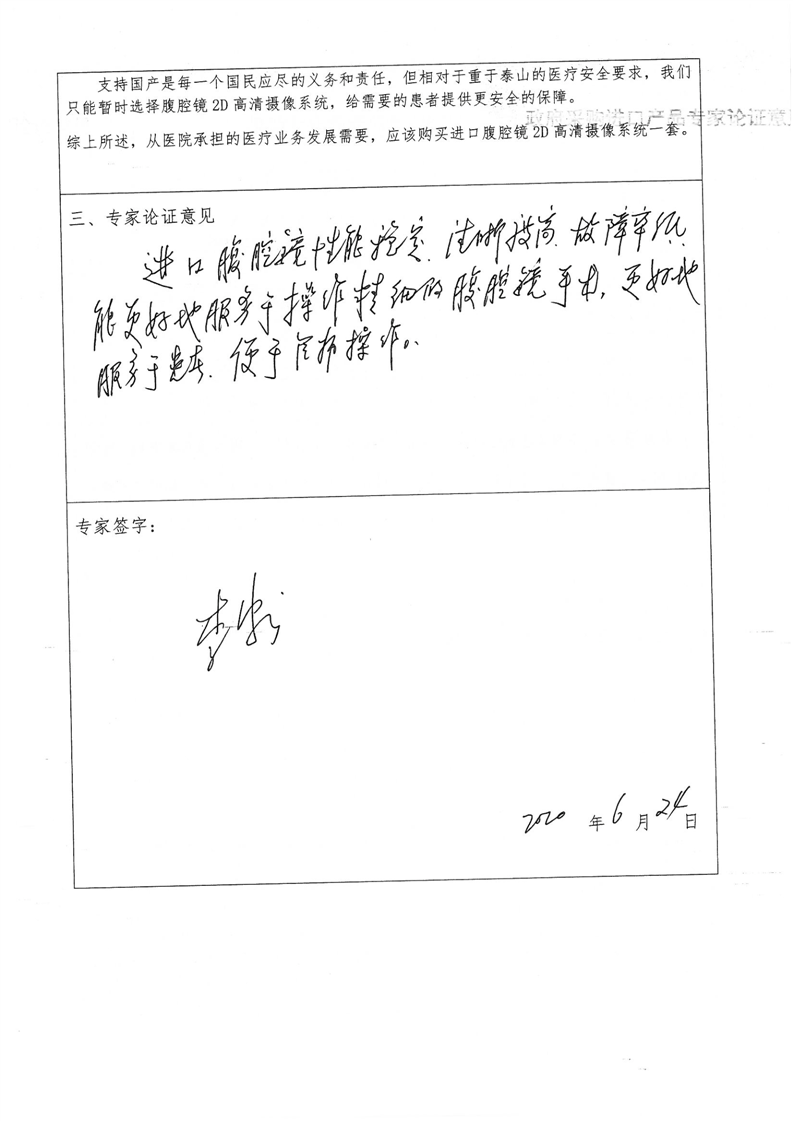 政府采购进口产品专家论证意
支持国产是每一个国民应尽的义务和责任，但相对于重于泰山的医疗安全要求，我们
只能暂时选择腹腔镜2D高清摄像系统，给需要的患者提供更安全的保障。
综上所述，从医院承担的医疗业务发展需要，应该购买进口腹腔镜2D高清摄像系统一套。
三、专家论证意见
进口腹腔镜性能稳定、清晰度高、故障率低、
能更好地服务于操作精细的腹腔镜手术，更好地
服务于患者、便于操作。
专家签字：
李
2020 年 6 月 24 日